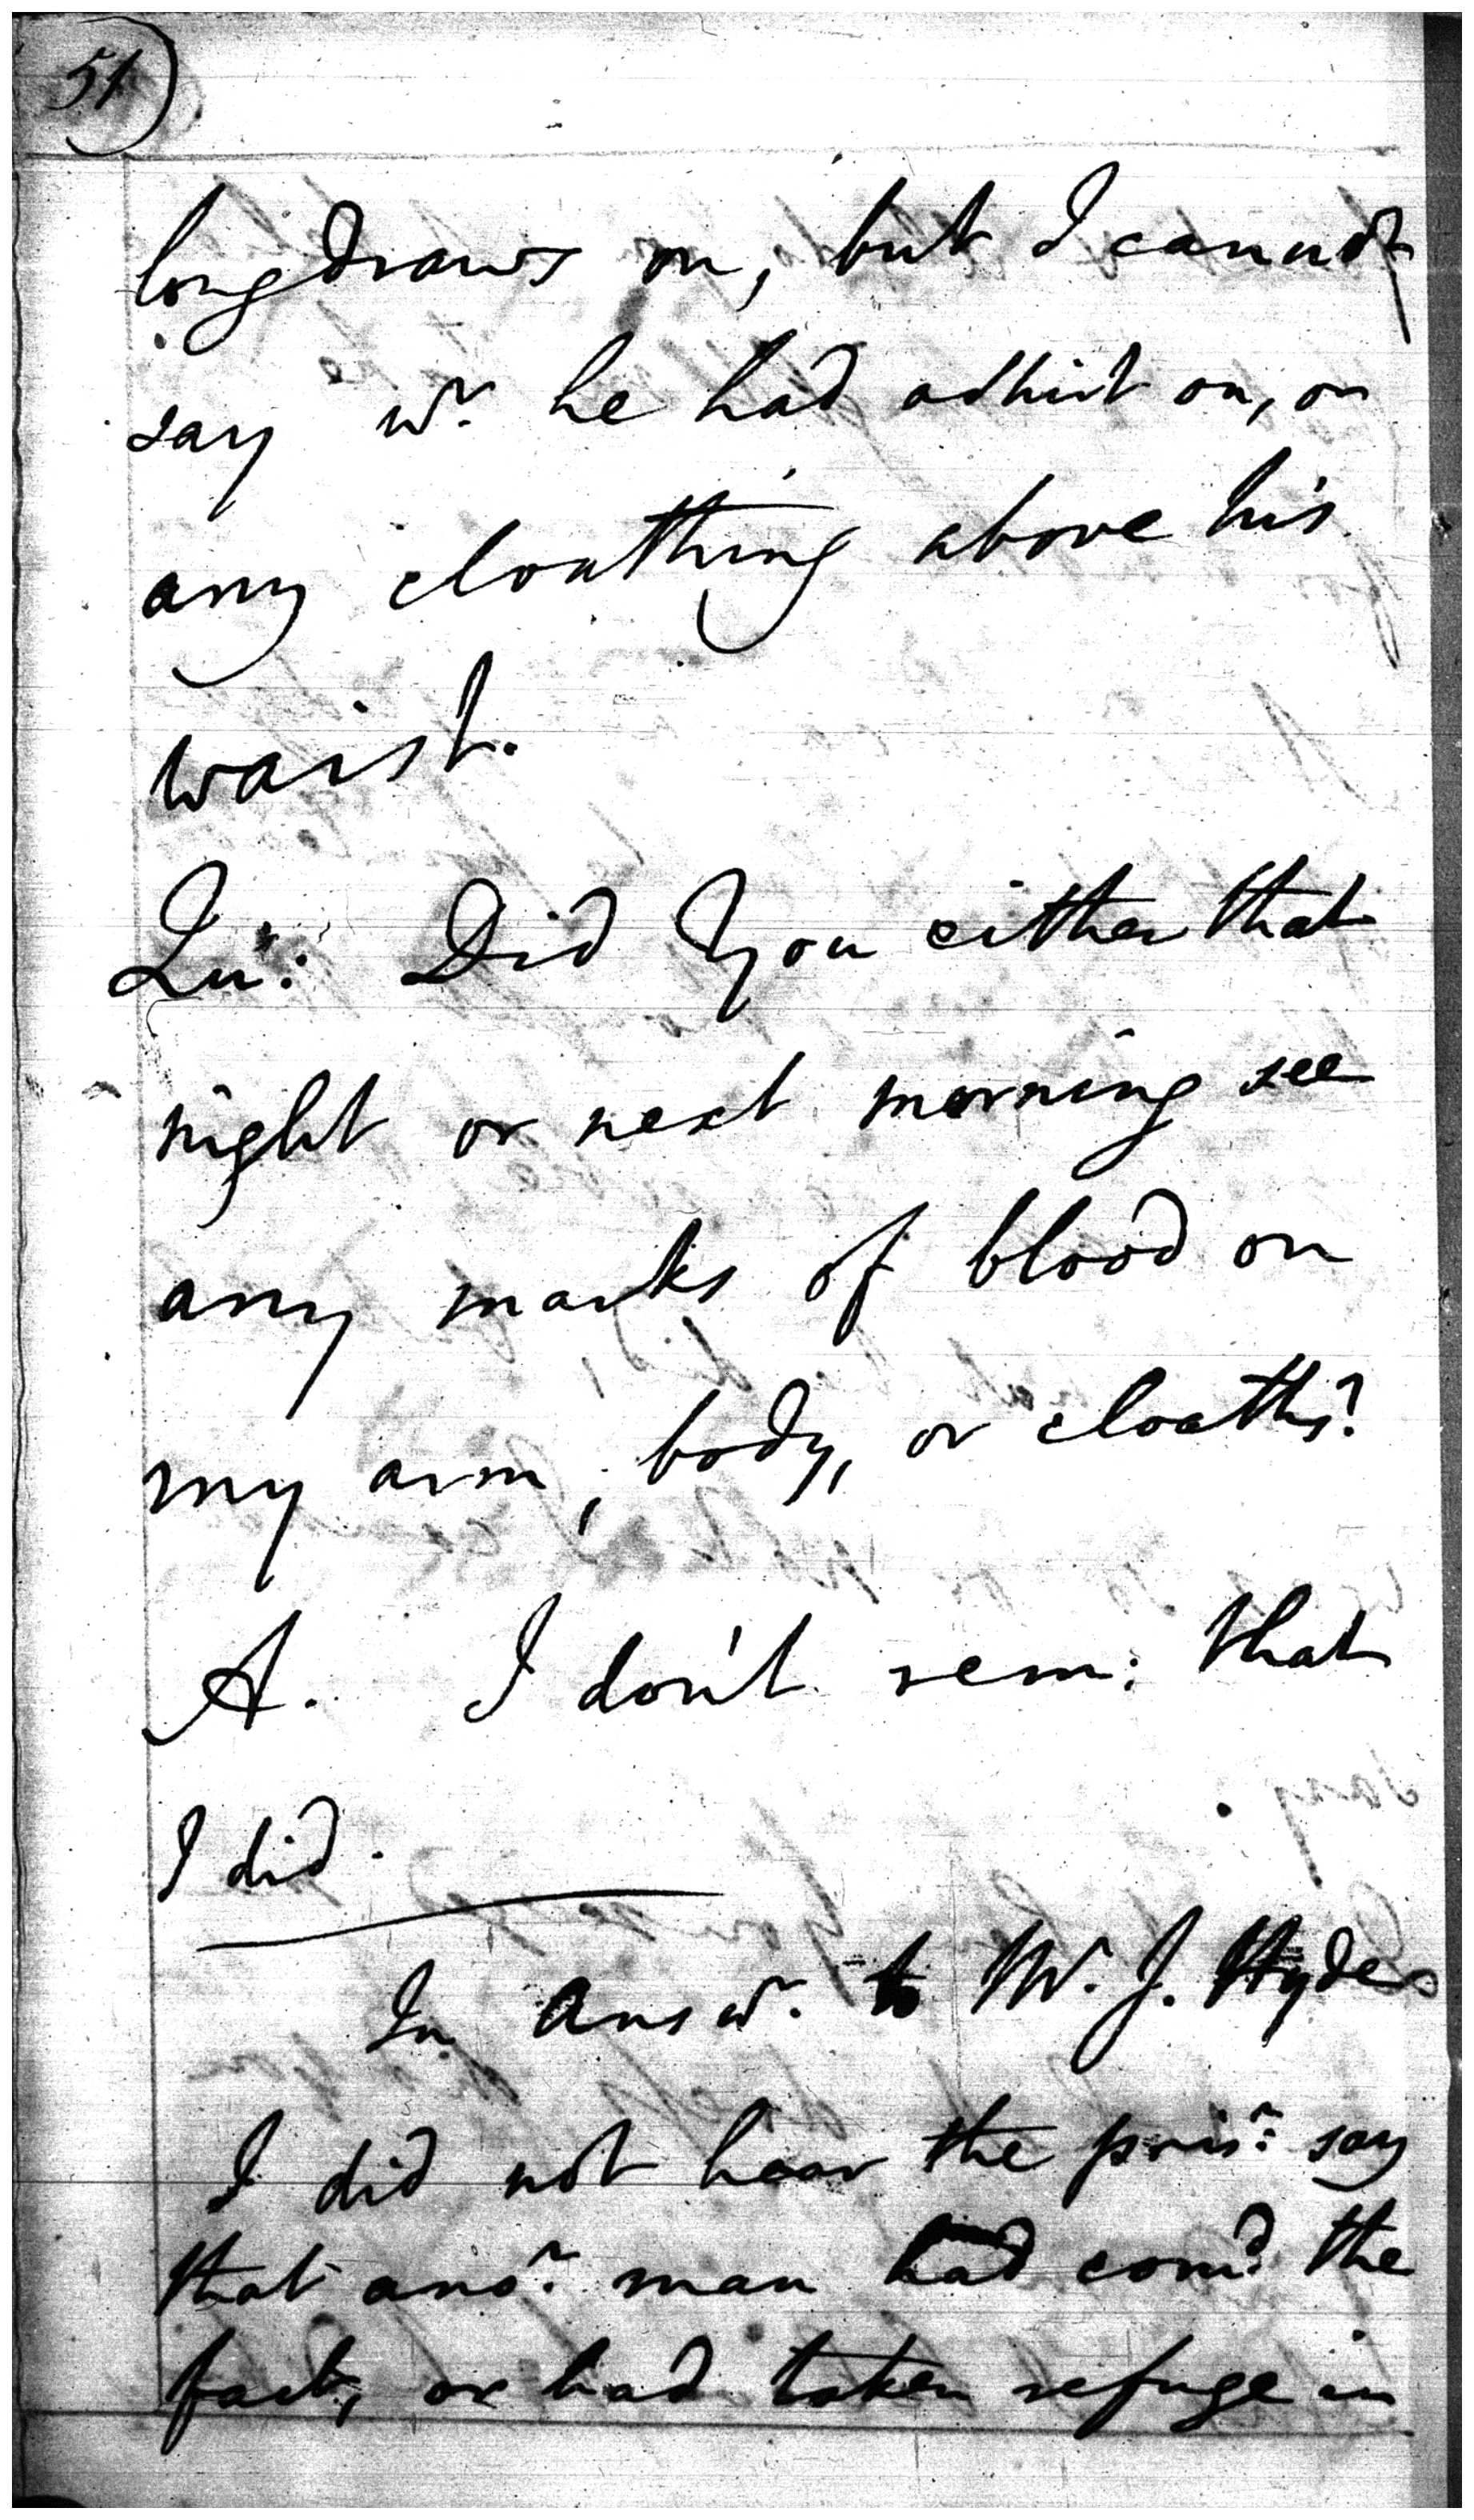 51)
long draws on, but I cannot
say wr. he had a shirt on, or
any cloathing above his
waist.
Qu: Did You either that
night or next morning see
any marks of blood on
my arm, body, or cloaths?
A. I don't rem: that
I did.
In answr. to Mr. J. Hyde
I did not hear the prisr: say
that anor. man had comd. the
fact, or had taken refuge in